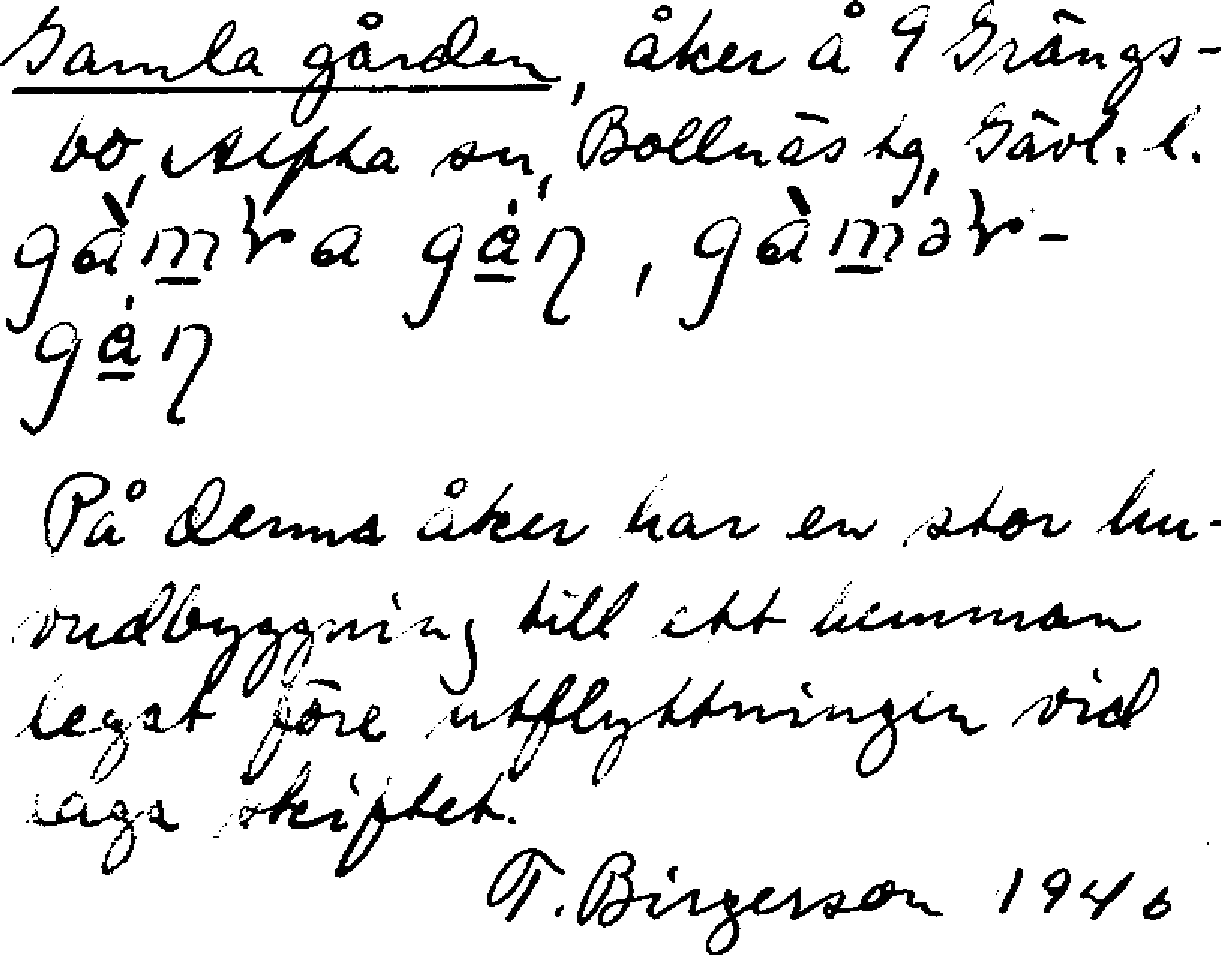 Gamla gården, åker å 9 Grängs-
bo, Alfta sn, Bollnäs tg, Gävl. l.
På denna åker har en stor hu-
vudbyggning till ett hemman
legat före utflyttningen vid
laga skiftet.
T. Birgerson 1940